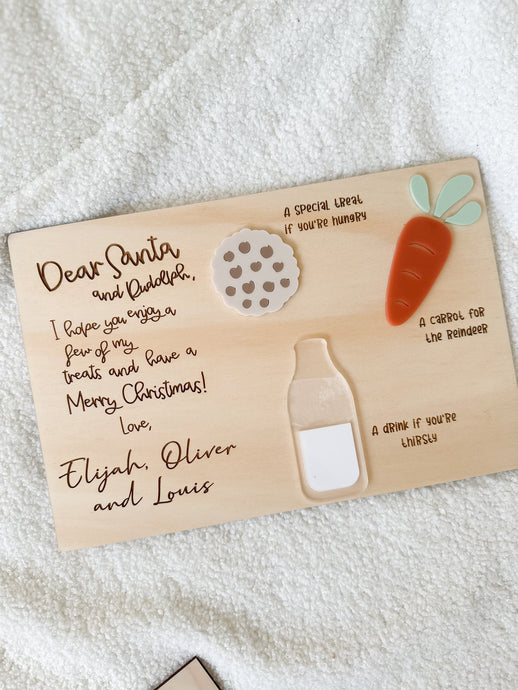 Dear Santa
and Rudolph,
I hope you enjoy a
few of my
treats and have a
Merry Christmas!
Love,
Elijah, Oliver
and Louis
A special treat
if you're hungry
A carrot for
the reindeer
A drink if you're
thirsty